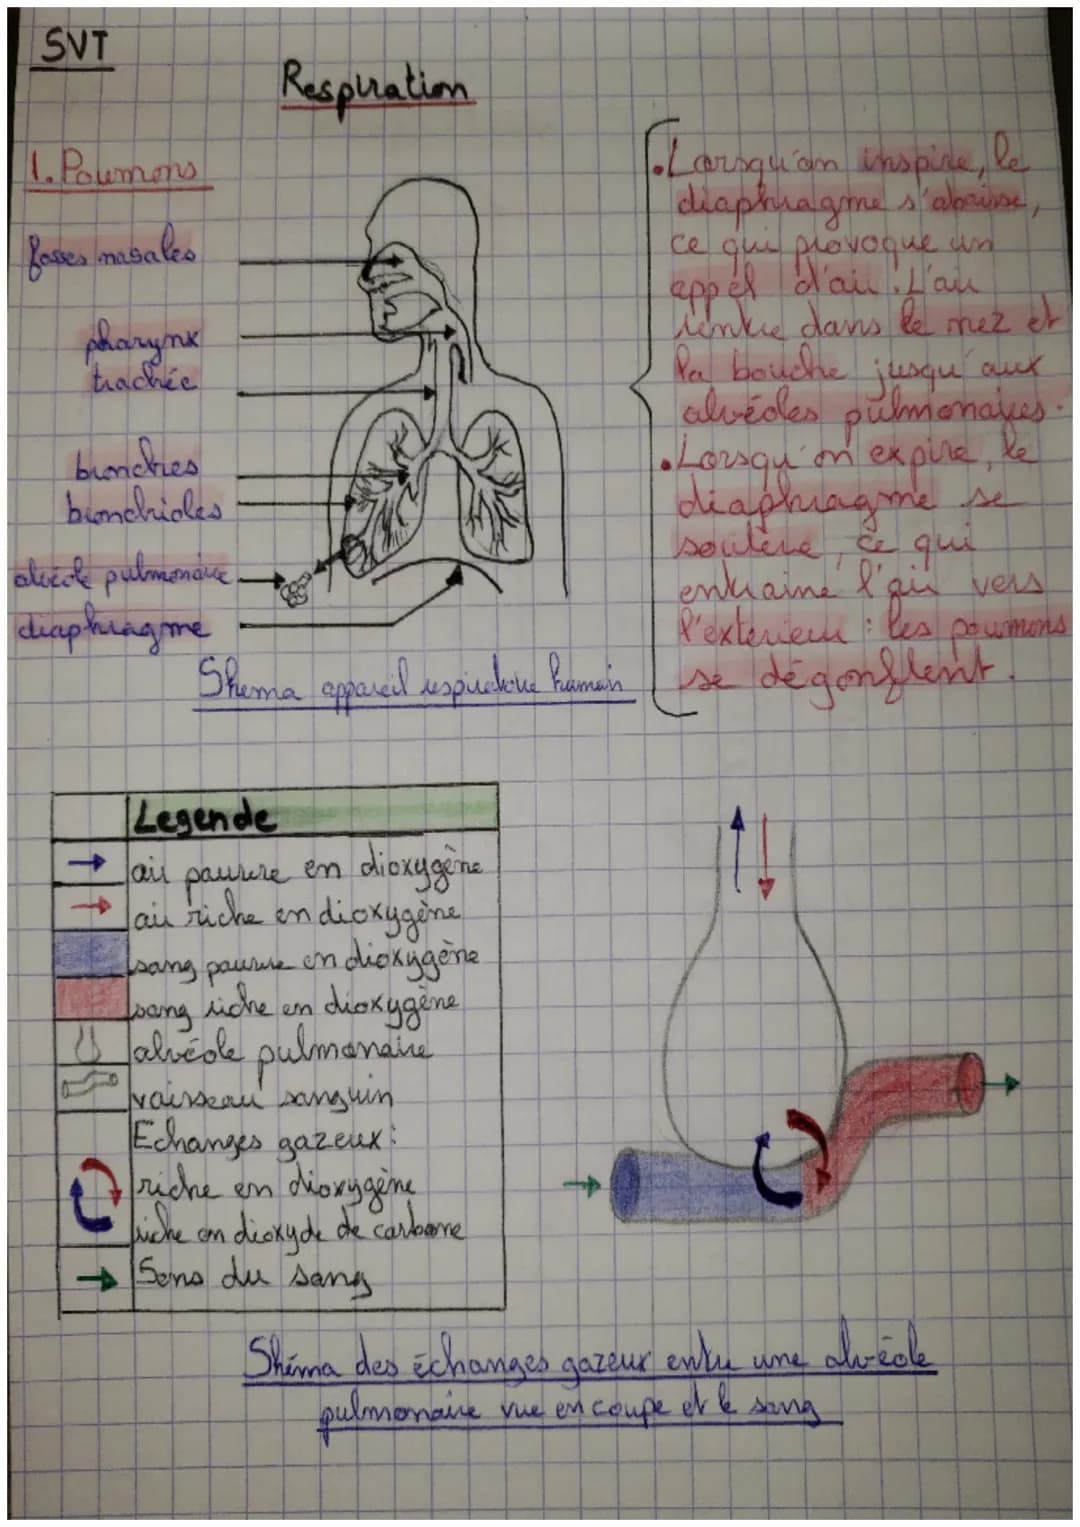 SVT
Respiration
1. Poumons
fosses nasales
pharynx
trachée
bronches
bronchioles
alvéole pulmonaire
diaphragme
Shema appareil respiratoire humain
• Lorsqu'on inspire, le
diaphragme s'abaisse,
ce qui provoque un
appel d'air. L'air
rentre dans le nez et
la bouche jusqu'aux
alvéoles pulmonaires.
• Lorsqu'on expire, le
diaphragme se
soulève, ce qui
entraine l'air vers
l'exterieur : les poumons
se dégonflent.
Legende
air pauvre en dioxygène
air riche en dioxygène
sang pauvre en dioxygène
sang riche en dioxygène
alvéole pulmonaire
vaisseau sanguin
Echanges gazeux:
riche en dioxygène
riche en dioxyde de carbone
Sens du sang
Shéma des échanges gazeux entre une alvéole
pulmonaire vue en coupe et le sang